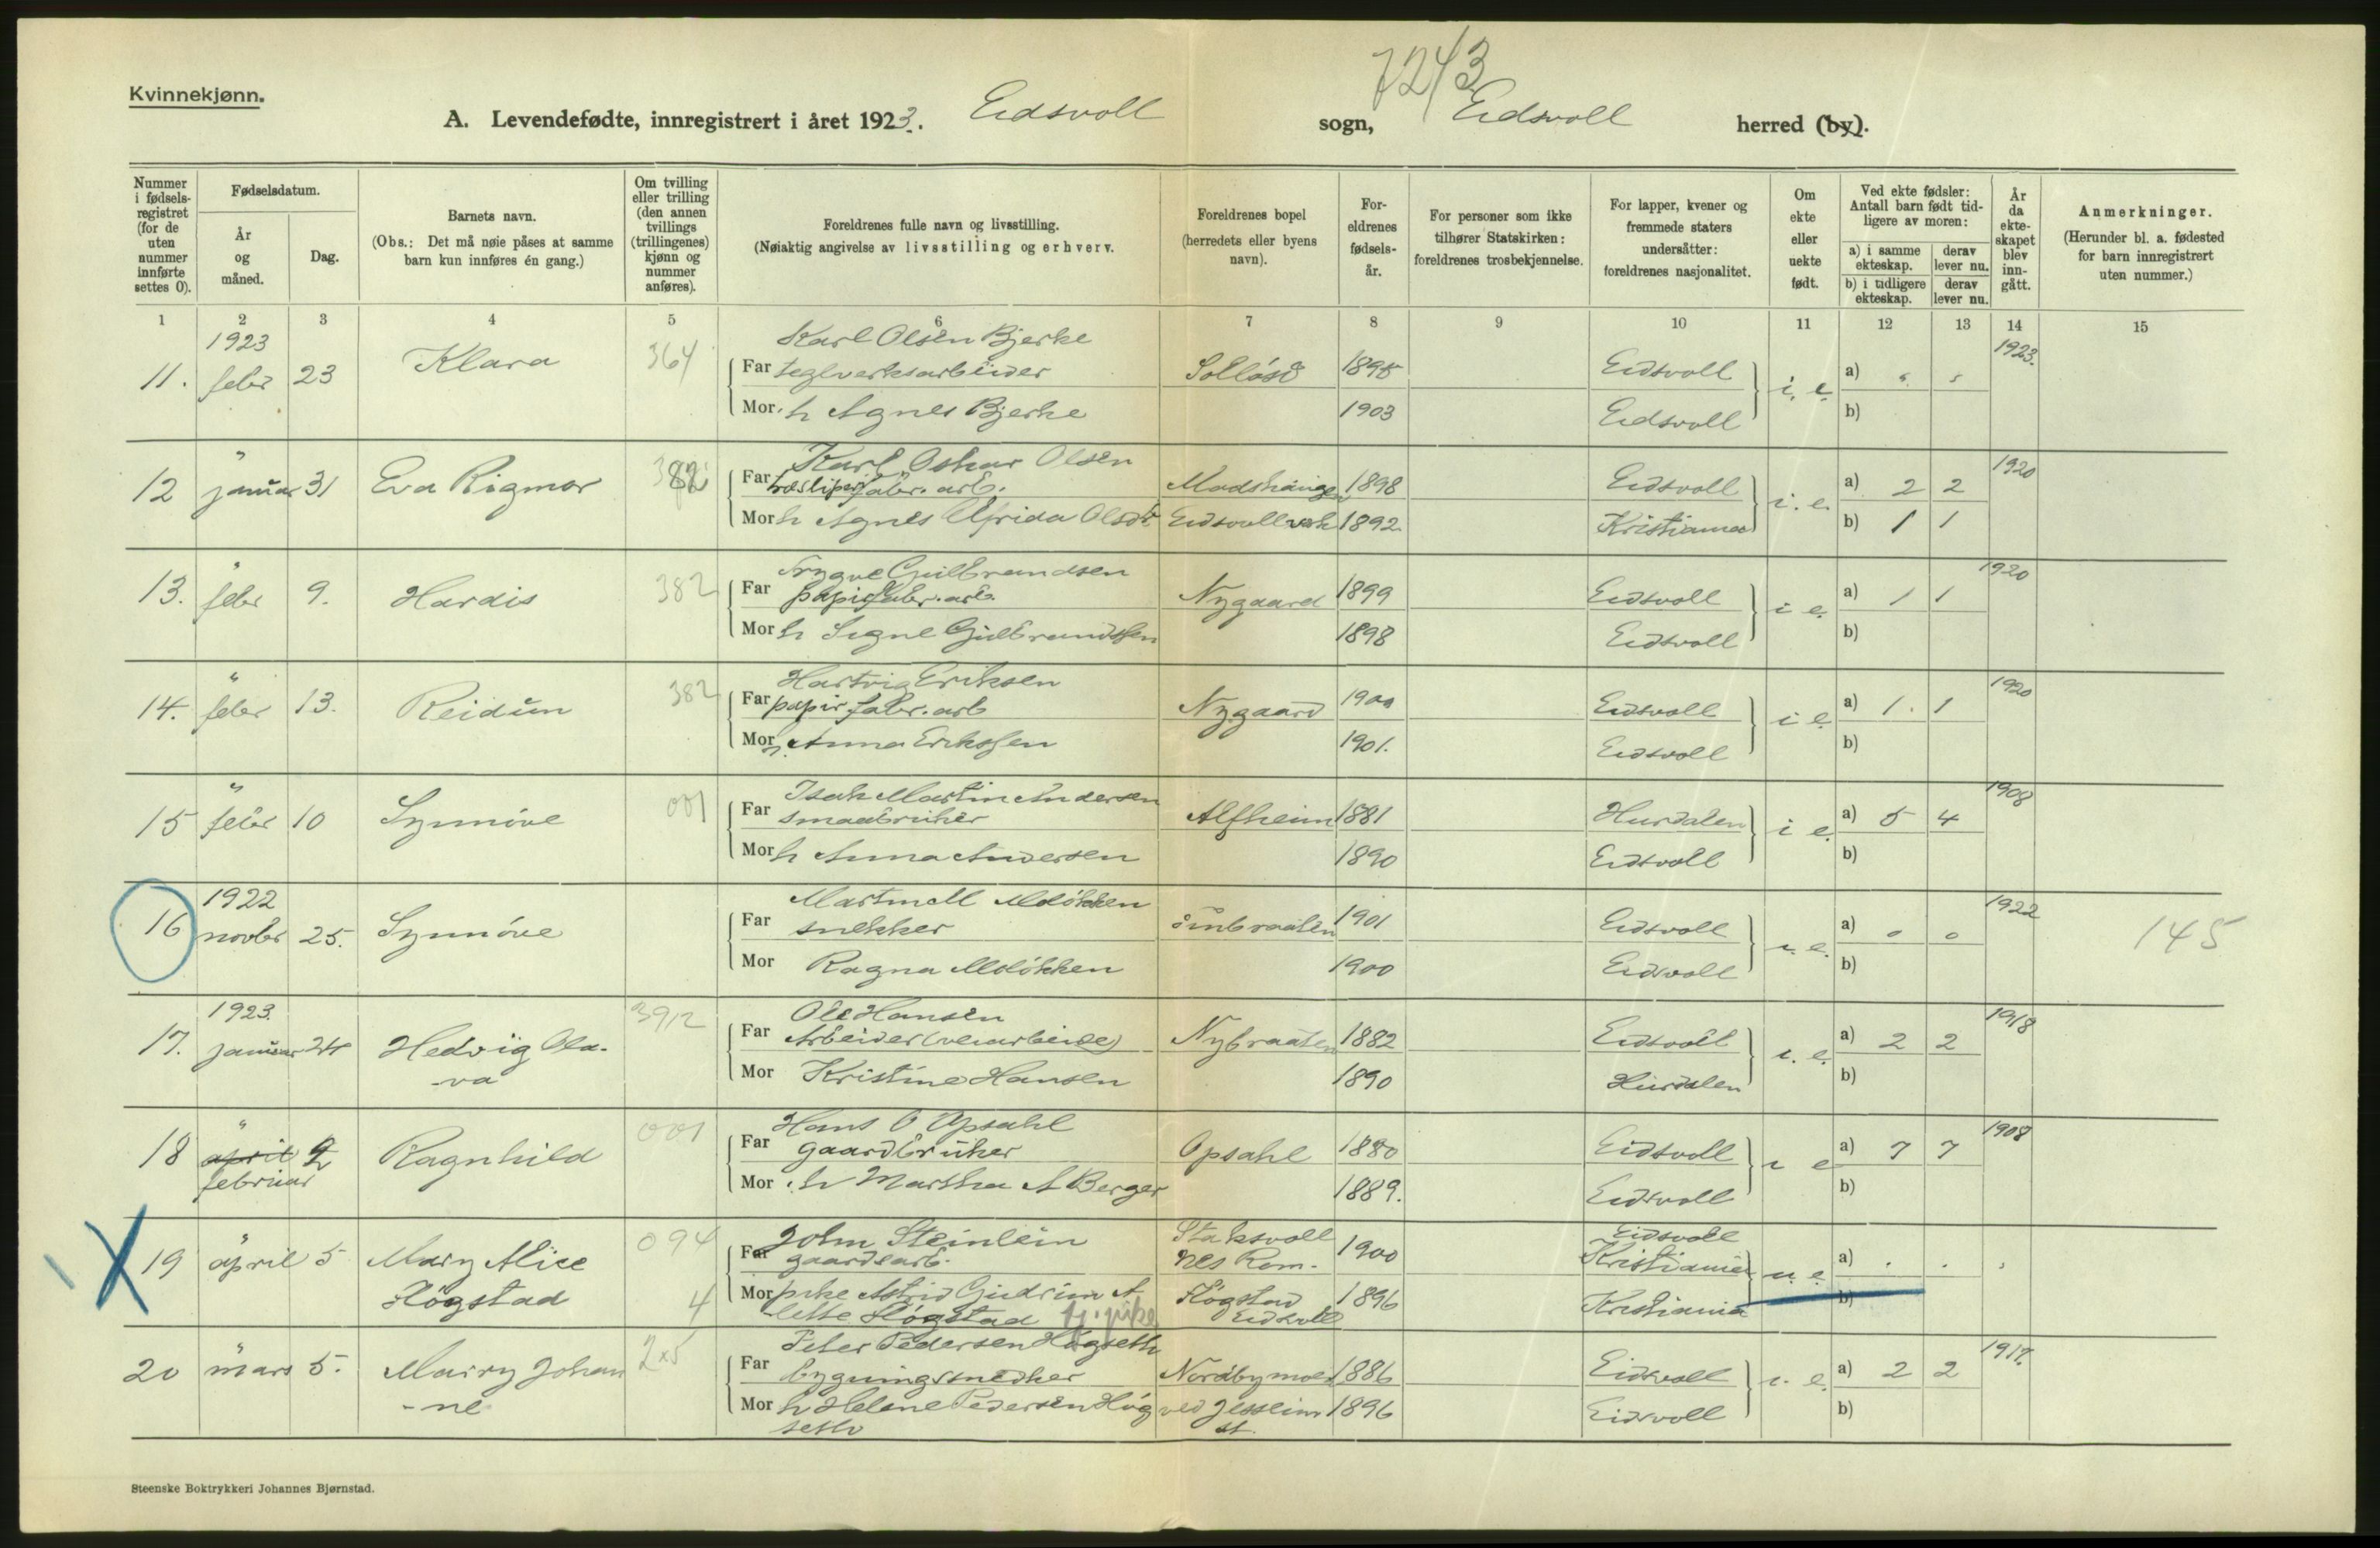 Kvinnekjønn.
7243
A. Levendefødte, innregistrert i året 1923. Eidsvoll sogn, Eidsvoll herred (by).
Nummer i fødselsregistret (for de uten nummer innførte settes 0).
Fødselsdatum.
År og måned.
Dag.
Barnets navn.
(Obs.: Det må nøie påses at samme barn kun innføres én gang.)
Om tvilling eller trilling (den annen tvillings (trillingenes) kjønn og nummer anføres).
Foreldrenes fulle navn og livsstilling.
(Nøiaktig angivelse av livsstilling og erhverv.
Foreldrenes bopel (herredets eller byens navn).
Foreldrenes fødselsår.
For personer som ikke tilhører Statskirken: foreldrenes trosbekjennelse.
For lapper, kvener og fremmede staters undersåtter: foreldrenes nasjonalitet.
Om ekte eller uekte født.
Ved ekte fødsler: Antall barn født tidligere av moren:
a) i samme ekteskap. derav lever nu.
b) i tidligere ekteskap. derav lever nu.
År da ekteskapet blev inngått.
Anmerkninger.
(Herunder bl. a. fødested for barn innregistrert uten nummer.)
1 2 3 4 5 6 7 8 9 10 11 12 13 14 15
1923 Karl Olsen Bjerke 1923.
11. febr 23 Klara 364 Far teglverksarbeider 1895 Eidsvoll i. e. a)
Mor h Agnes Bjerke 1903 Eidsvoll b)
" Karl Oskar Olsen 1920
12 januar 31 Eva Rigmor 382 Far træsliperifabr. arb. 1898 Eidsvoll i. e. a) 2 2
Mor h Agnes Elfrida Olsdtr Eidsvoll verk 1892 Kristiania b) 1 1
" Trygve Gulbrandsen 1920
13. febr 9. Hardis 382 Far papirfabr. arb. Nygaard 1899 Eidsvoll i e. a) 1 1
Mor h Signe Gulbrandssen 1898 Eidsvoll b)
" Hartvig Eriksen 1920
14. febr 13. Reidun 382 Far papirfabr. arb Nygaard 1900 Eidsvoll i e. a) 1. 1
Mor h. Anna Erikssen 1901. Eidsvoll b)
" Isak Martin Andersen 1908
15 febr 10 Synnöve 001 Far smaabruker Alfheim 1881 Hurdalen i e. a) 5 4
Mor h Anna Andersen 1890 Eidsvoll b)
1922 1922
16 novbr 25. Synnöve Far snekker 1901 Eidsvoll a) 0 0 145
Mor Ragna 1900 Eidsvoll b)
1923. Ole Hansen 1918
17. januar 24 Hedvig Ola- 3912 Far Arbeider (veiarbeide) Nybraaten 1882 Eidsvoll i. e. a) 2 2
-va Mor Kristine Hansen 1890 Hurdalen b)
" Hans O Opsahl 1908
18 april 2 Ragnhild 001 Far gaardbruker Opsahl 1880 Eidsvoll i e a) 7 7
februar Mor h Martha A Berger 1889. Eidsvoll b)
" John Steinlein Eidsvoll
19 april 5 Mary Alice 094 Far gaardsarb. nes Rom. 1900 Kristiania u. e. a)
Högstad 4 Mor pike Astrid Gudrun A Högstad 1896 Kristiania b)
lette Högstad tj. pike Eidsvoll
" Peter Pedersen Högseth 1917.
20 mars 5. Mairy Johan 2x5 Far bygningssnedker Nordbymoen 1886 Eidsvoll i. e. a) 2 2
-ne Mor h Helene Pedersen Hög ved Jessheim 1896 Eidsvoll b)
seth st.
Steenske Boktrykkeri Johannes Bjørnstad.